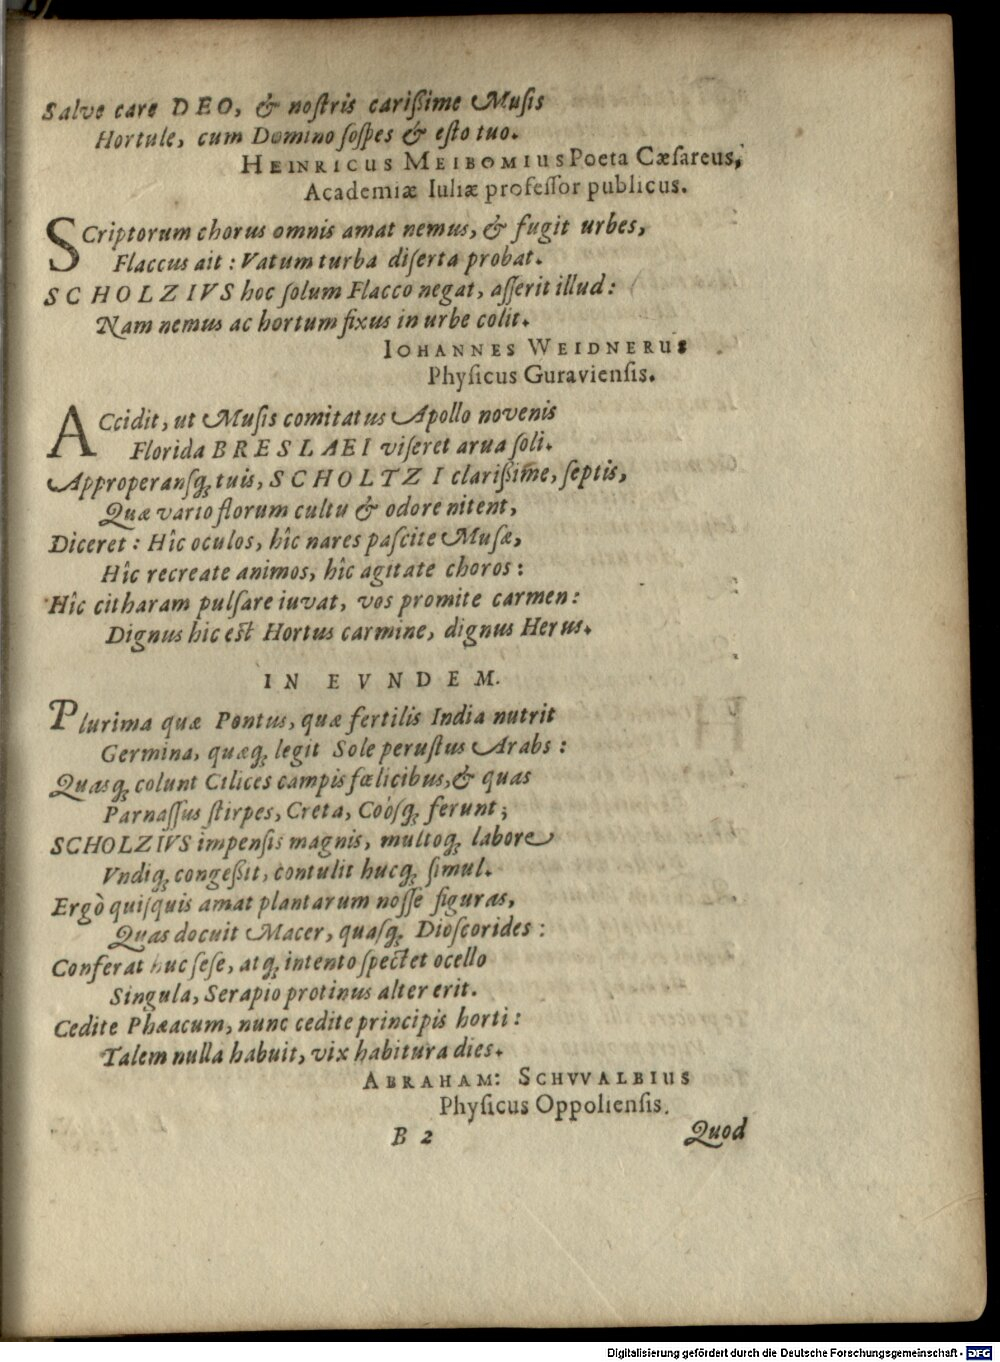 Salve care DEO, & nostris carißime Musis
Hortule, cum Domino sospes & esto tuo.
HEINRICUS MEIBOMIUS Poeta Cæsareus,
Academiæ Iuliæ professor publicus.
SCriptorum chorus omnis amat nemus, & fugit urbes,
Flaccus ait: Vatum turba diserta probat.
SCHOLZIVS hoc solum Flacco negat, asserit illud:
Nam nemus ac hortum fixus in urbe colit.
IOHANNES WEIDNERUS
Physicus Guraviensis.
ACcidit, ut Musis comitatus Apollo novenis
Florida BRESLAEI viseret arua soli.
Approperansq; tuis, SCHOLTZI clarißime, septis,
Quæ vario florum cultu & odore nitent,
Diceret: Hîc oculos, hîc nares pascite Musæ,
Hîc recreate animos, hîc agitate choros:
Hîc citharam pulsare iuvat, vos promite carmen:
Dignus hic est Hortus carmine, dignus Herus.
IN EVNDEM.
Plurima quæ Pontus, quæ fertilis India nutrit
Germina, quæq; legit Sole perustus Arabs:
Quasq; colunt Cilices campis fœlicibus, & quas
Parnassus stirpes, Creta, Coósq; ferunt;
SCHOLZIVS impensis magnis, multoq; labore
Vndiq; congeßit, contulit hucq; simul.
Ergò quisquis amat plantarum nosse figuras,
Quas docuit Macer, quasq; Dioscorides:
Conferat huc sese, atq; intento spectet ocello
Singula, Serapio protinus alter erit.
Cedite Phæacum, nunc cedite principis horti:
Talem nulla habuit, vix habitura dies.
ABRAHAM: SCHVVALBIUS
Physicus Oppoliensis.
B 2 Quod
Digitalisierung gefördert durch die Deutsche Forschungsgemeinschaft - DFG